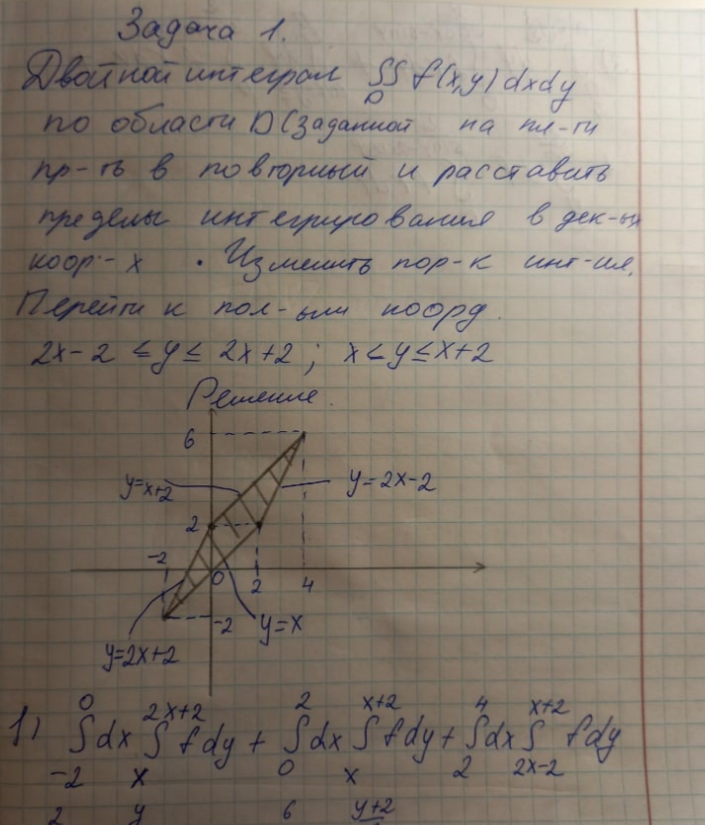 Задача 1.
Двойной интеграл ∫∫ f(x,y) dxdy
D
по области D (заданной на пл-ти
пр-ть в повторный и расставить
пределы интегрирования в дек-ых
коор-х . Изменить пор-к инт-ия.
Перейти к пол-ым коорд.
2x-2 ≤ y ≤ 2x+2 ; x ≤ y ≤ x+2
Решение.
6
y=x+2
y=2x-2
2
-2
0
2
4
-2
y=x
y=2x+2
0 2x+2 2 x+2 4 x+2
1) ∫dx ∫ f dy + ∫dx ∫ f dy + ∫dx ∫ f dy
-2 x 0 x 2 2x-2
2 y 6 y+2